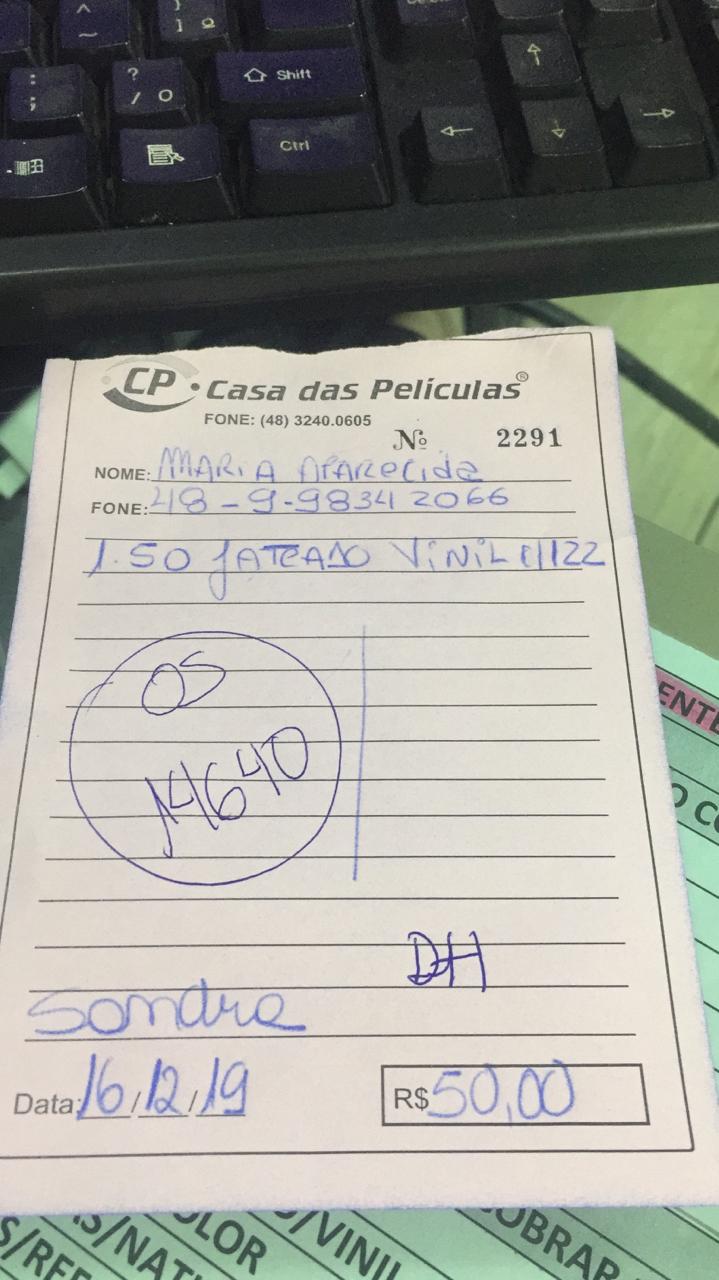 ^
~
}
]
º
:
;
?
/
O
Shift
Ctrl
CP • Casa das Películas®
FONE: (48) 3240.0605
Nº 2291
NOME: MARIA APARECIDA
FONE: 48 - 9-9834 2066
1.50 JATEADO VINIL
OS
14640
DH
Sandra
Data: 16/12/19
R$ 50,00
ENTE
O CO
OLOR
/VINIL
COBRAR
S/NAT
S/REF